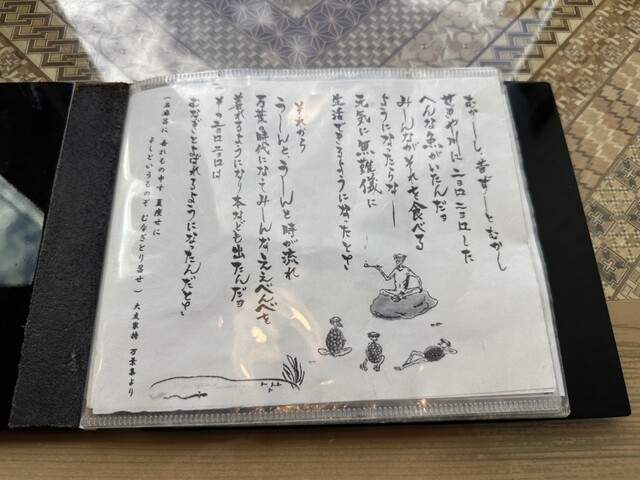 むかーし、昔昔ーしとむかし
せきや川にニョロニョロした
へんな魚がいたんだヨ
みーんながそれを食べる
ようになったらなー
元気に無難儀に
生活できるようになったとさ
それから
うーんとうーんと時が流れ
万葉の時代になってみーんなええべんべを
着れるようになり本なども出たんだヨ
そのニョロニョロは
むなぎとよばれるようになったんだとさ
(石麻呂に 吾れもの申す 夏痩せに
よしというものぞ むなぎとり召せ) 大友家持 万葉集より